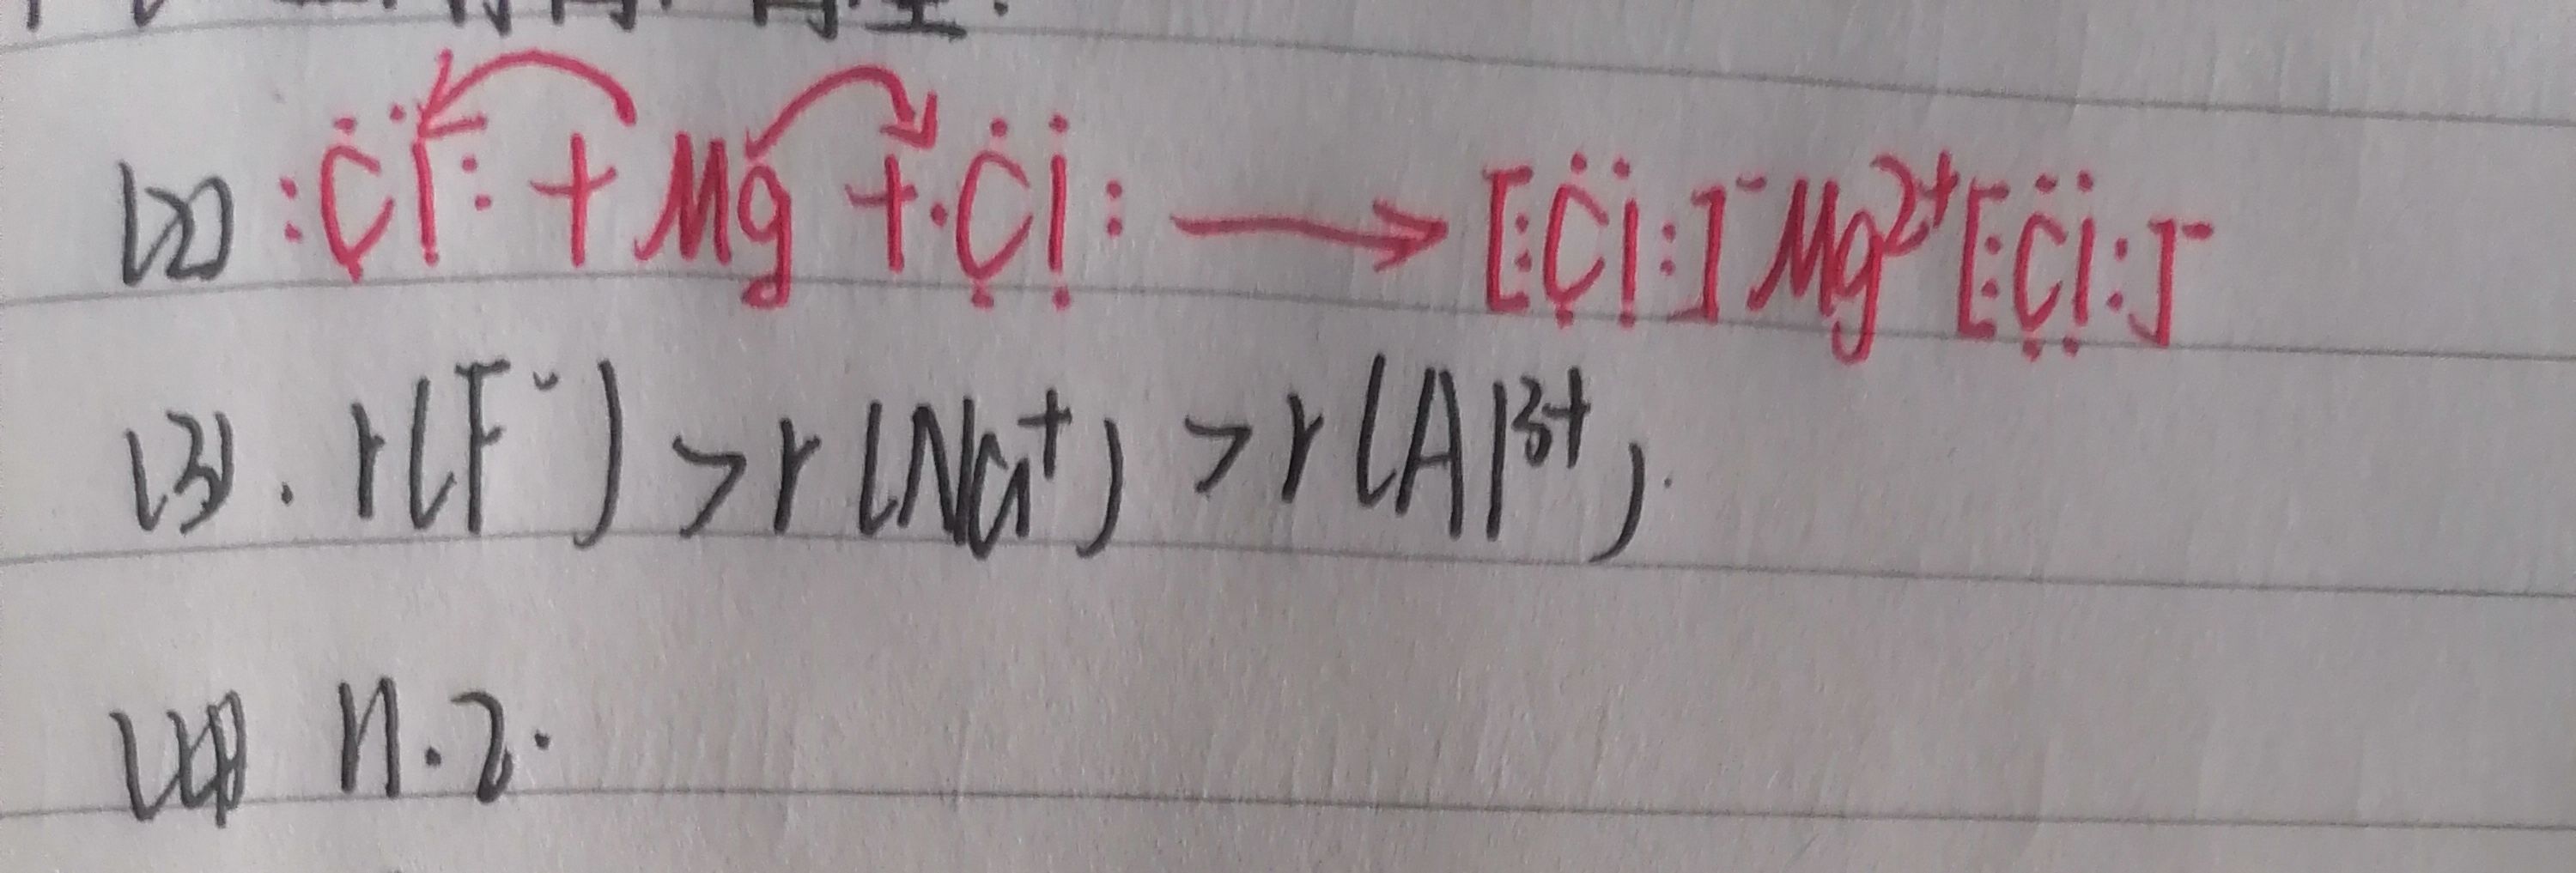 (2) :C̈l̤̈: + Mg + ·C̤̈l̤̈: → [:C̤̈l̤̈:]⁻Mg²⁺[:C̤̈l̤̈:]⁻
(3). r(F⁻) > r(Na⁺) > r(Al³⁺).
(4) 11.2.